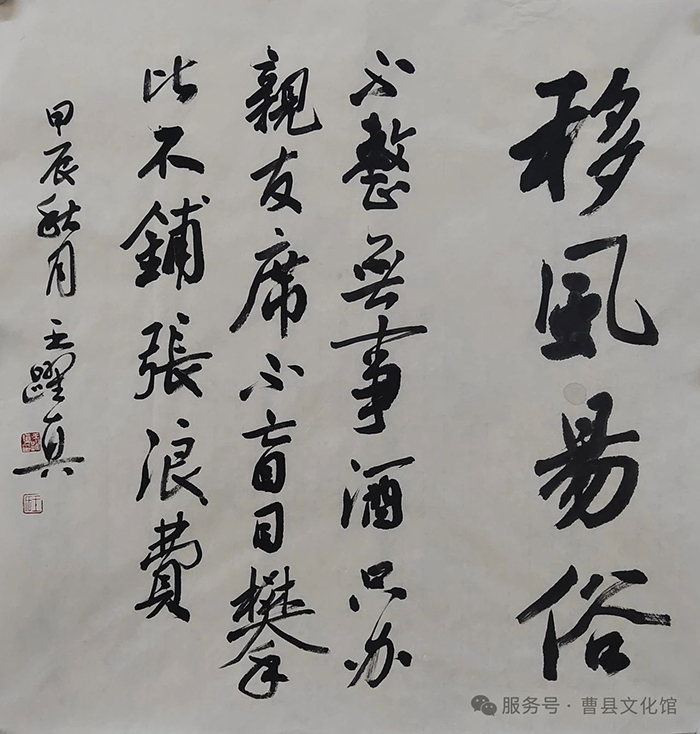 移風易俗
不整無事酒只办
親友席不盲目攀
比不鋪張浪費
甲辰秋月王躍真
服务号·曹县文化馆